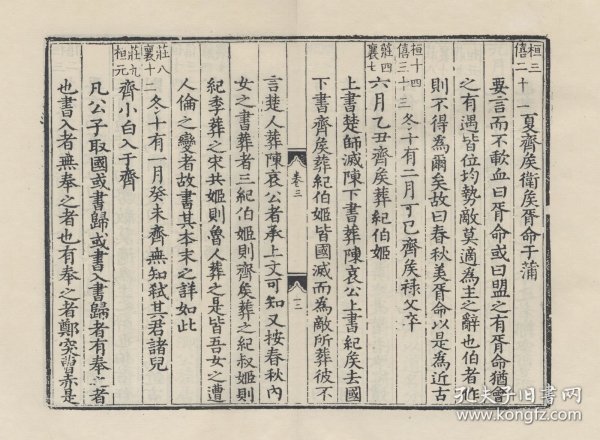 桓三
僖二十一
夏齊矦衛矦胥命于蒲
要言而不歃血曰胥命或曰盟之有胥命猶會
之有遇皆位均勢敵莫適為主之辭也伯者作
則不得為爾矣故曰春秋美胥命以是為近古
桓十四
僖三十三
冬十有二月丁巳齊矦祿父卒
莊四
襄七
六月乙丑齊矦葬紀伯姬
上書楚師滅陳下書葬陳哀公上書紀矦去國
下書齊矦葬紀伯姬皆國滅而為敵所葬彼不
卷三
言楚人葬陳哀公者承上文可知又按春秋內
女之書葬者三紀伯姬則齊矦葬之紀叔姬則
紀季葬之宋共姬則魯人葬之是皆吾女之遭
人倫之變者故書其本末之詳如此
莊八
襄十二
冬十有一月癸未齊無知弒其君諸兒
莊九
桓元
齊小白入于齊
凡公子取國或書歸或書入書歸者有奉之者
也書入者無奉之者也有奉之者鄭突曹赤是
孔夫子旧书网